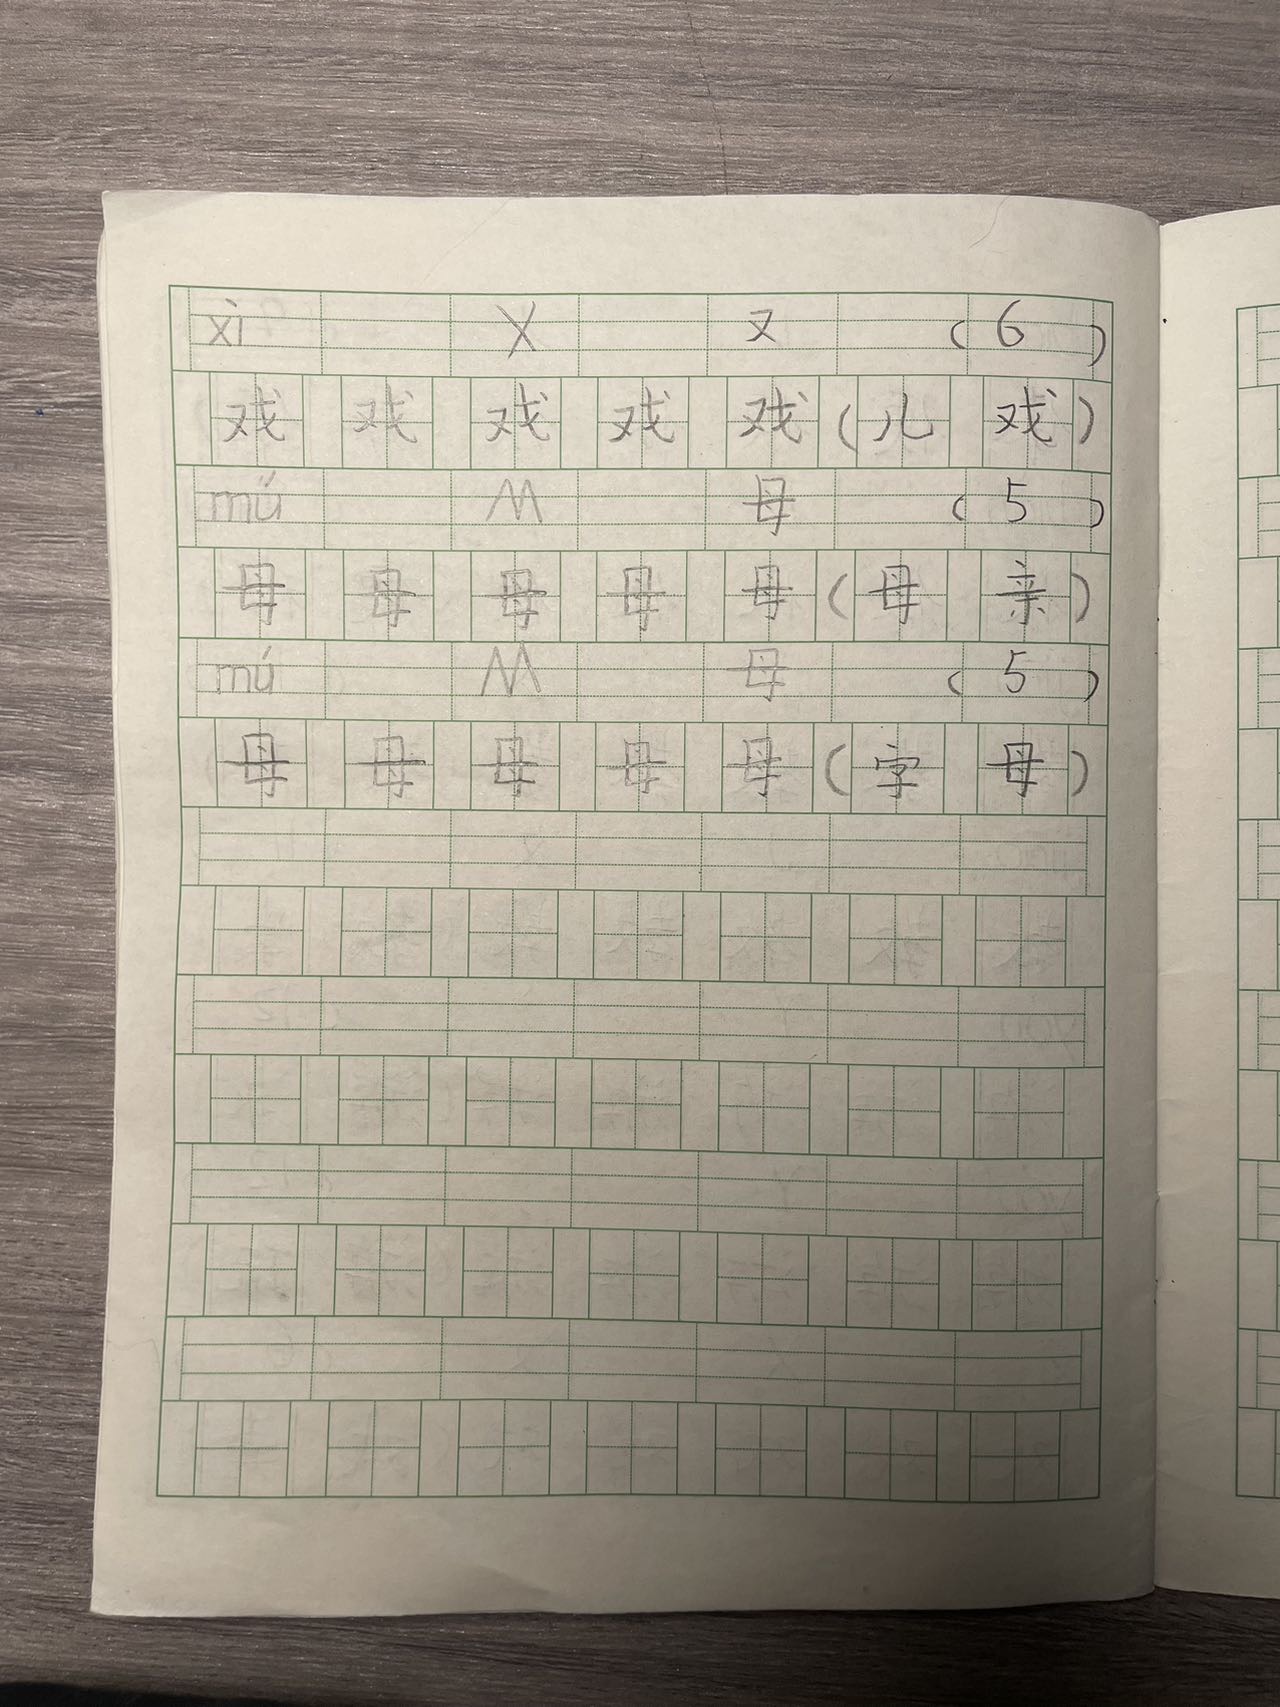 xì X 又 ( 6 )
戏 戏 戏 戏 戏 ( 儿 戏 )
mǔ M 母 ( 5 )
母 母 母 母 母 ( 母 亲 )
mú M 母 ( 5 )
母 母 母 母 母 ( 字 母 )